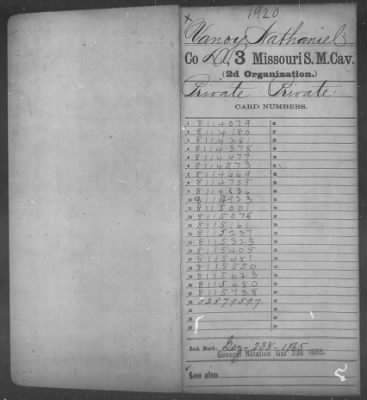 1920
Vanoy Nathaniel
Co D, 3 Missouri S. M. Cav.
(2d Organization.)
Private Private
CARD NUMBERS.
8114079
8114180
8114281
8114378
8114477
8114573
8114669
8114755
8114836
8114923
8115001
8115078
8115161
8115237
8115323
8115405
8115481
8115550
8115623
8115680
8115738
Book Mark: 238-1865
General Notation 238 1865.
See also